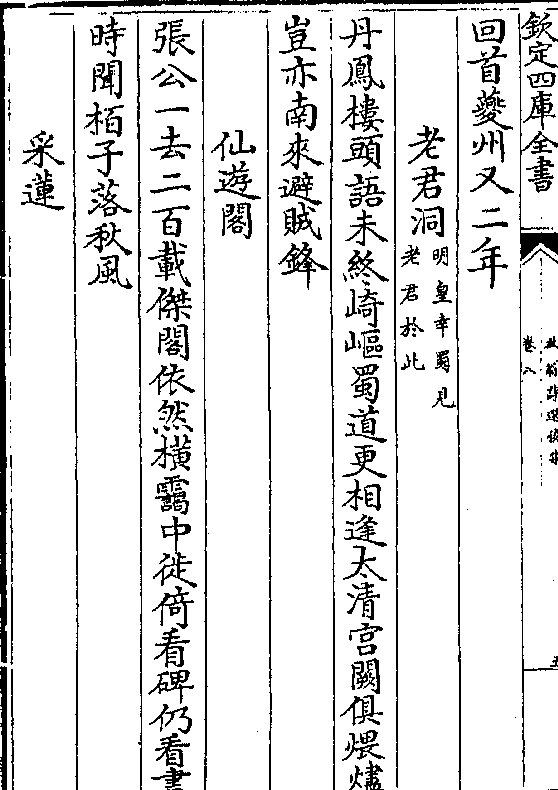 欽定四庫全書
卷八
回首夔州又二年
老君洞
明皇幸蜀見
老君於此
丹鳳樓頭語未終崎嶇蜀道更相逢太清宮闕俱煨燼
豈亦南來避賊鋒
仙遊閣
張公一去二百載傑閣依然橫靄中徙倚看碑仍看書
時聞栢子落秋風
采蓮